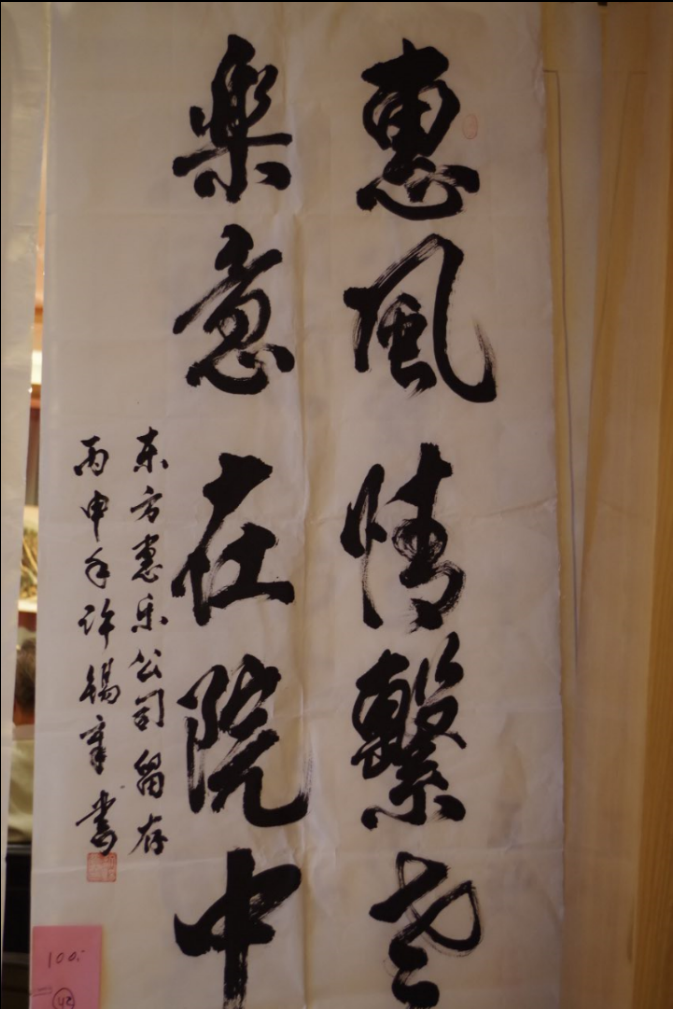 惠風情繫老
楽意在院中
东方惠乐公司留存
丙申年许锡章书
100.-
42